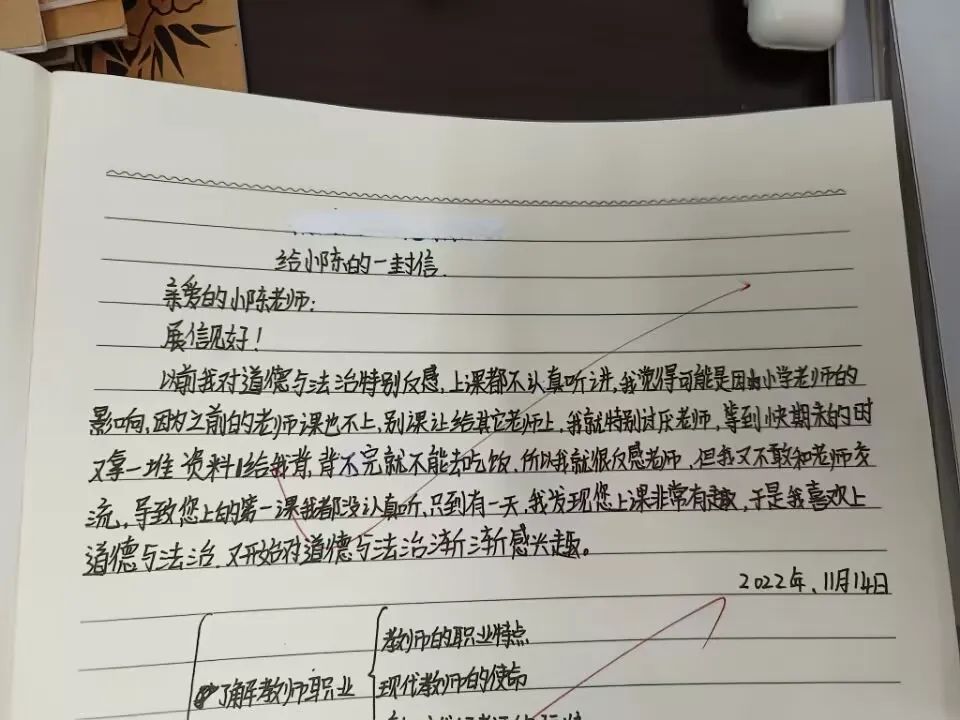 给小陈的一封信.
亲爱的小陈老师:
展信见好!
以前我对道德与法治特别反感,上课都不认真听讲,我觉得可能是因由小学老师的
影响,因为之前的老师课也不上,别课让给其它老师上,我就特别讨厌老师,等到快期末的时
又拿一堆资料给我背,背不完就不能去吃饭,所以我就很反感老师,但我又不敢和老师交
流,导致您上的第一课我都没认真听,只到有一天,我发现您上课非常有趣,于是我喜欢上
道德与法治,又开始对道德与法治渐渐感兴趣。
2022年,11月14日
教师的职业特点
了解教师职业
现代教师的使命